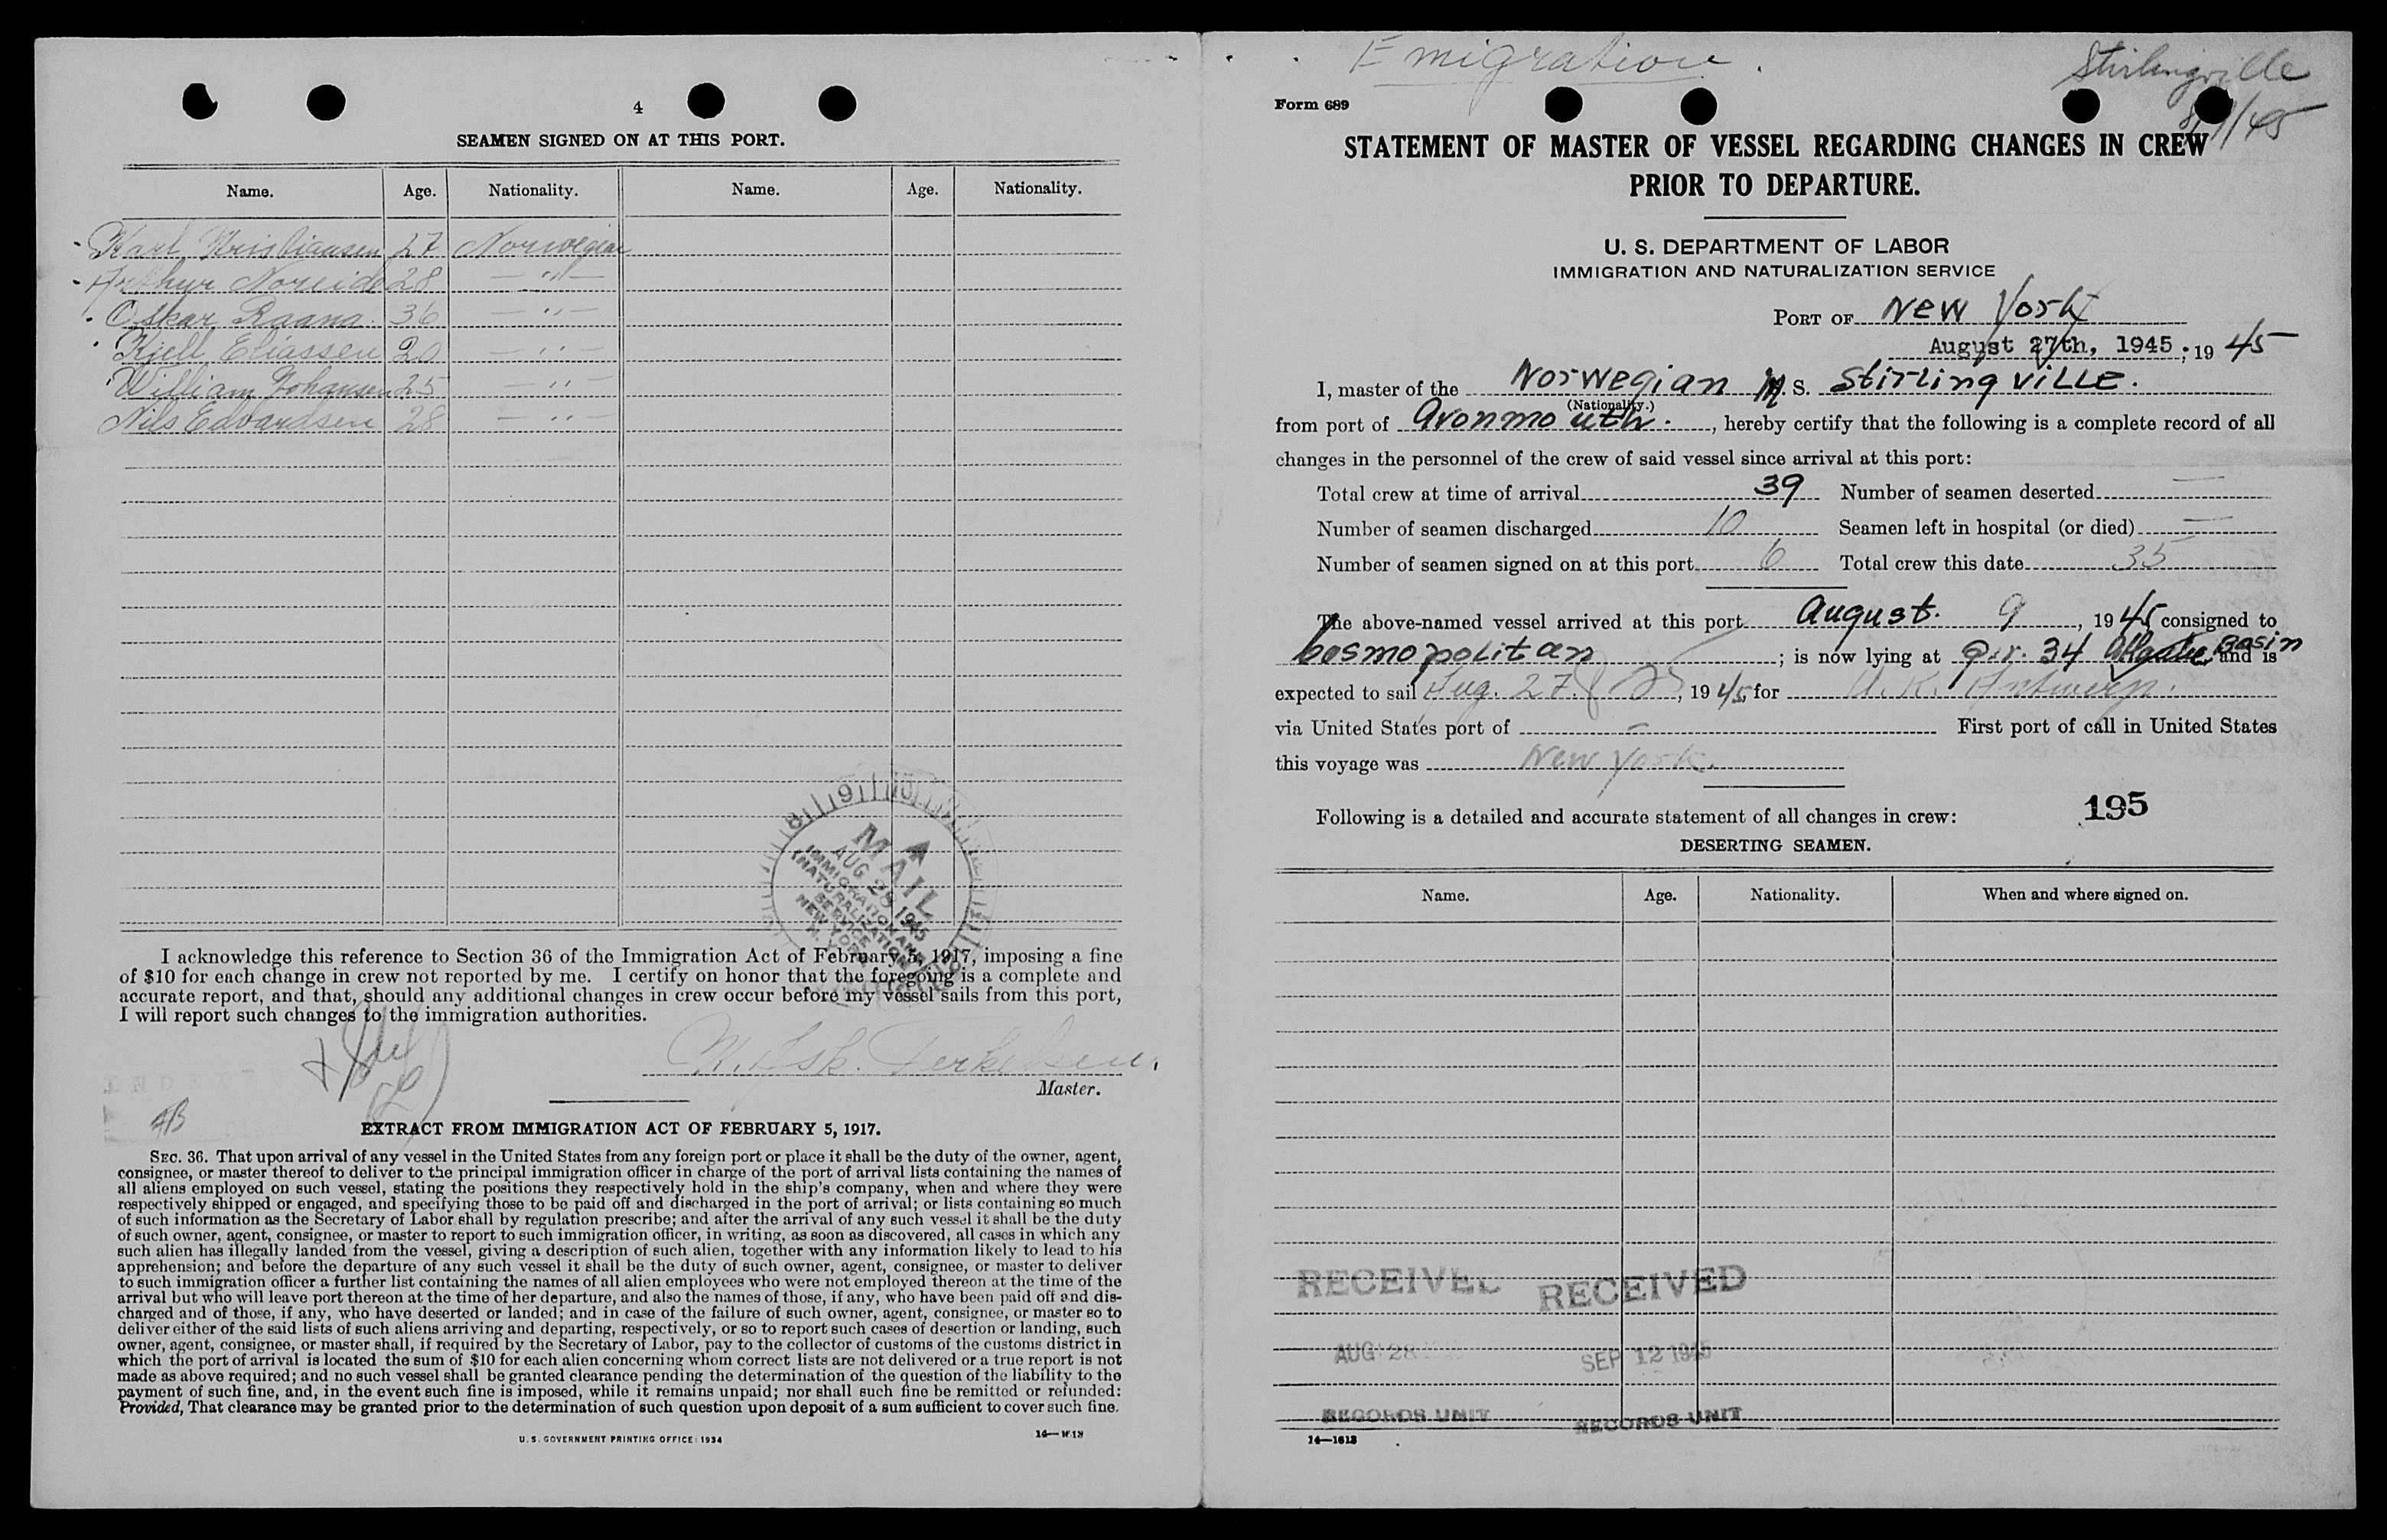 4
SEAMEN SIGNED ON AT THIS PORT.
Name. Age. Nationality. Name. Age. Nationality.
Karl Kristiansen 27 Norwegian
Arthur Noreide 28 — " —
Oskar Raana. 36 — " —
Kjell Eliassen 20 — " —
William Johansen 25 — " —
Nils Edvardsen 28 — " —
8 9 10
A
MAIL
AUG 28 1945
IMMIGRATION AND
NATURALIZATION
SERVICE
NEW YORK
N. Y.
I acknowledge this reference to Section 36 of the Immigration Act of February 5, 1917, imposing a fine
of $10 for each change in crew not reported by me. I certify on honor that the foregoing is a complete and
accurate report, and that, should any additional changes in crew occur before my vessel sails from this port,
I will report such changes to the immigration authorities.
Master.
AB
EXTRACT FROM IMMIGRATION ACT OF FEBRUARY 5, 1917.
SEC. 36. That upon arrival of any vessel in the United States from any foreign port or place it shall be the duty of the owner, agent,
consignee, or master thereof to deliver to the principal immigration officer in charge of the port of arrival lists containing the names of
all aliens employed on such vessel, stating the positions they respectively hold in the ship's company, when and where they were
respectively shipped or engaged, and specifying those to be paid off and discharged in the port of arrival; or lists containing so much
of such information as the Secretary of Labor shall by regulation prescribe; and after the arrival of any such vessel it shall be the duty
of such owner, agent, consignee, or master to report to such immigration officer, in writing, as soon as discovered, all cases in which any
such alien has illegally landed from the vessel, giving a description of such alien, together with any information likely to lead to his
apprehension; and before the departure of any such vessel it shall be the duty of such owner, agent, consignee, or master to deliver
to such immigration officer a further list containing the names of all alien employees who were not employed thereon at the time of the
arrival but who will leave port thereon at the time of her departure, and also the names of those, if any, who have been paid off and dis-
charged and of those, if any, who have deserted or landed; and in case of the failure of such owner, agent, consignee, or master so to
deliver either of the said lists of such aliens arriving and departing, respectively, or so to report such cases of desertion or landing, such
owner, agent, consignee, or master shall, if required by the Secretary of Labor, pay to the collector of customs of the customs district in
which the port of arrival is located the sum of $10 for each alien concerning whom correct lists are not delivered or a true report is not
made as above required; and no such vessel shall be granted clearance pending the determination of the question of the liability to the
payment of such fine, and, in the event such fine is imposed, while it remains unpaid; nor shall such fine be remitted or refunded:
Provided, That clearance may be granted prior to the determination of such question upon deposit of a sum sufficient to cover such fine.
U. S. GOVERNMENT PRINTING OFFICE: 1934
Emigration
Stirlingville
Form 689
STATEMENT OF MASTER OF VESSEL REGARDING CHANGES IN CREW
PRIOR TO DEPARTURE.
U. S. DEPARTMENT OF LABOR
IMMIGRATION AND NATURALIZATION SERVICE
PORT OF New York
August 27th, 1945; 19 45
I, master of the Norwegian M. S. Stirlingville.
(Nationality.)
from port of Avonmouth., hereby certify that the following is a complete record of all
changes in the personnel of the crew of said vessel since arrival at this port:
Total crew at time of arrival 39 Number of seamen deserted —
Number of seamen discharged 10 Seamen left in hospital (or died) —
Number of seamen signed on at this port 6 Total crew this date 35
The above-named vessel arrived at this port August. 9, 1945 consigned to
Cosmopolitan; is now lying at pir. 34 Atlantic Basin and is
expected to sail Aug. 27, 1945 for U.K. Antwerp.
via United States port of — First port of call in United States
this voyage was New York.
Following is a detailed and accurate statement of all changes in crew: 195
DESERTING SEAMEN.
Name. Age. Nationality. When and where signed on.
RECEIVED RECEIVED
AUG 28 SEP 12 1945
RECORDS UNIT RECORDS UNIT
14—1613